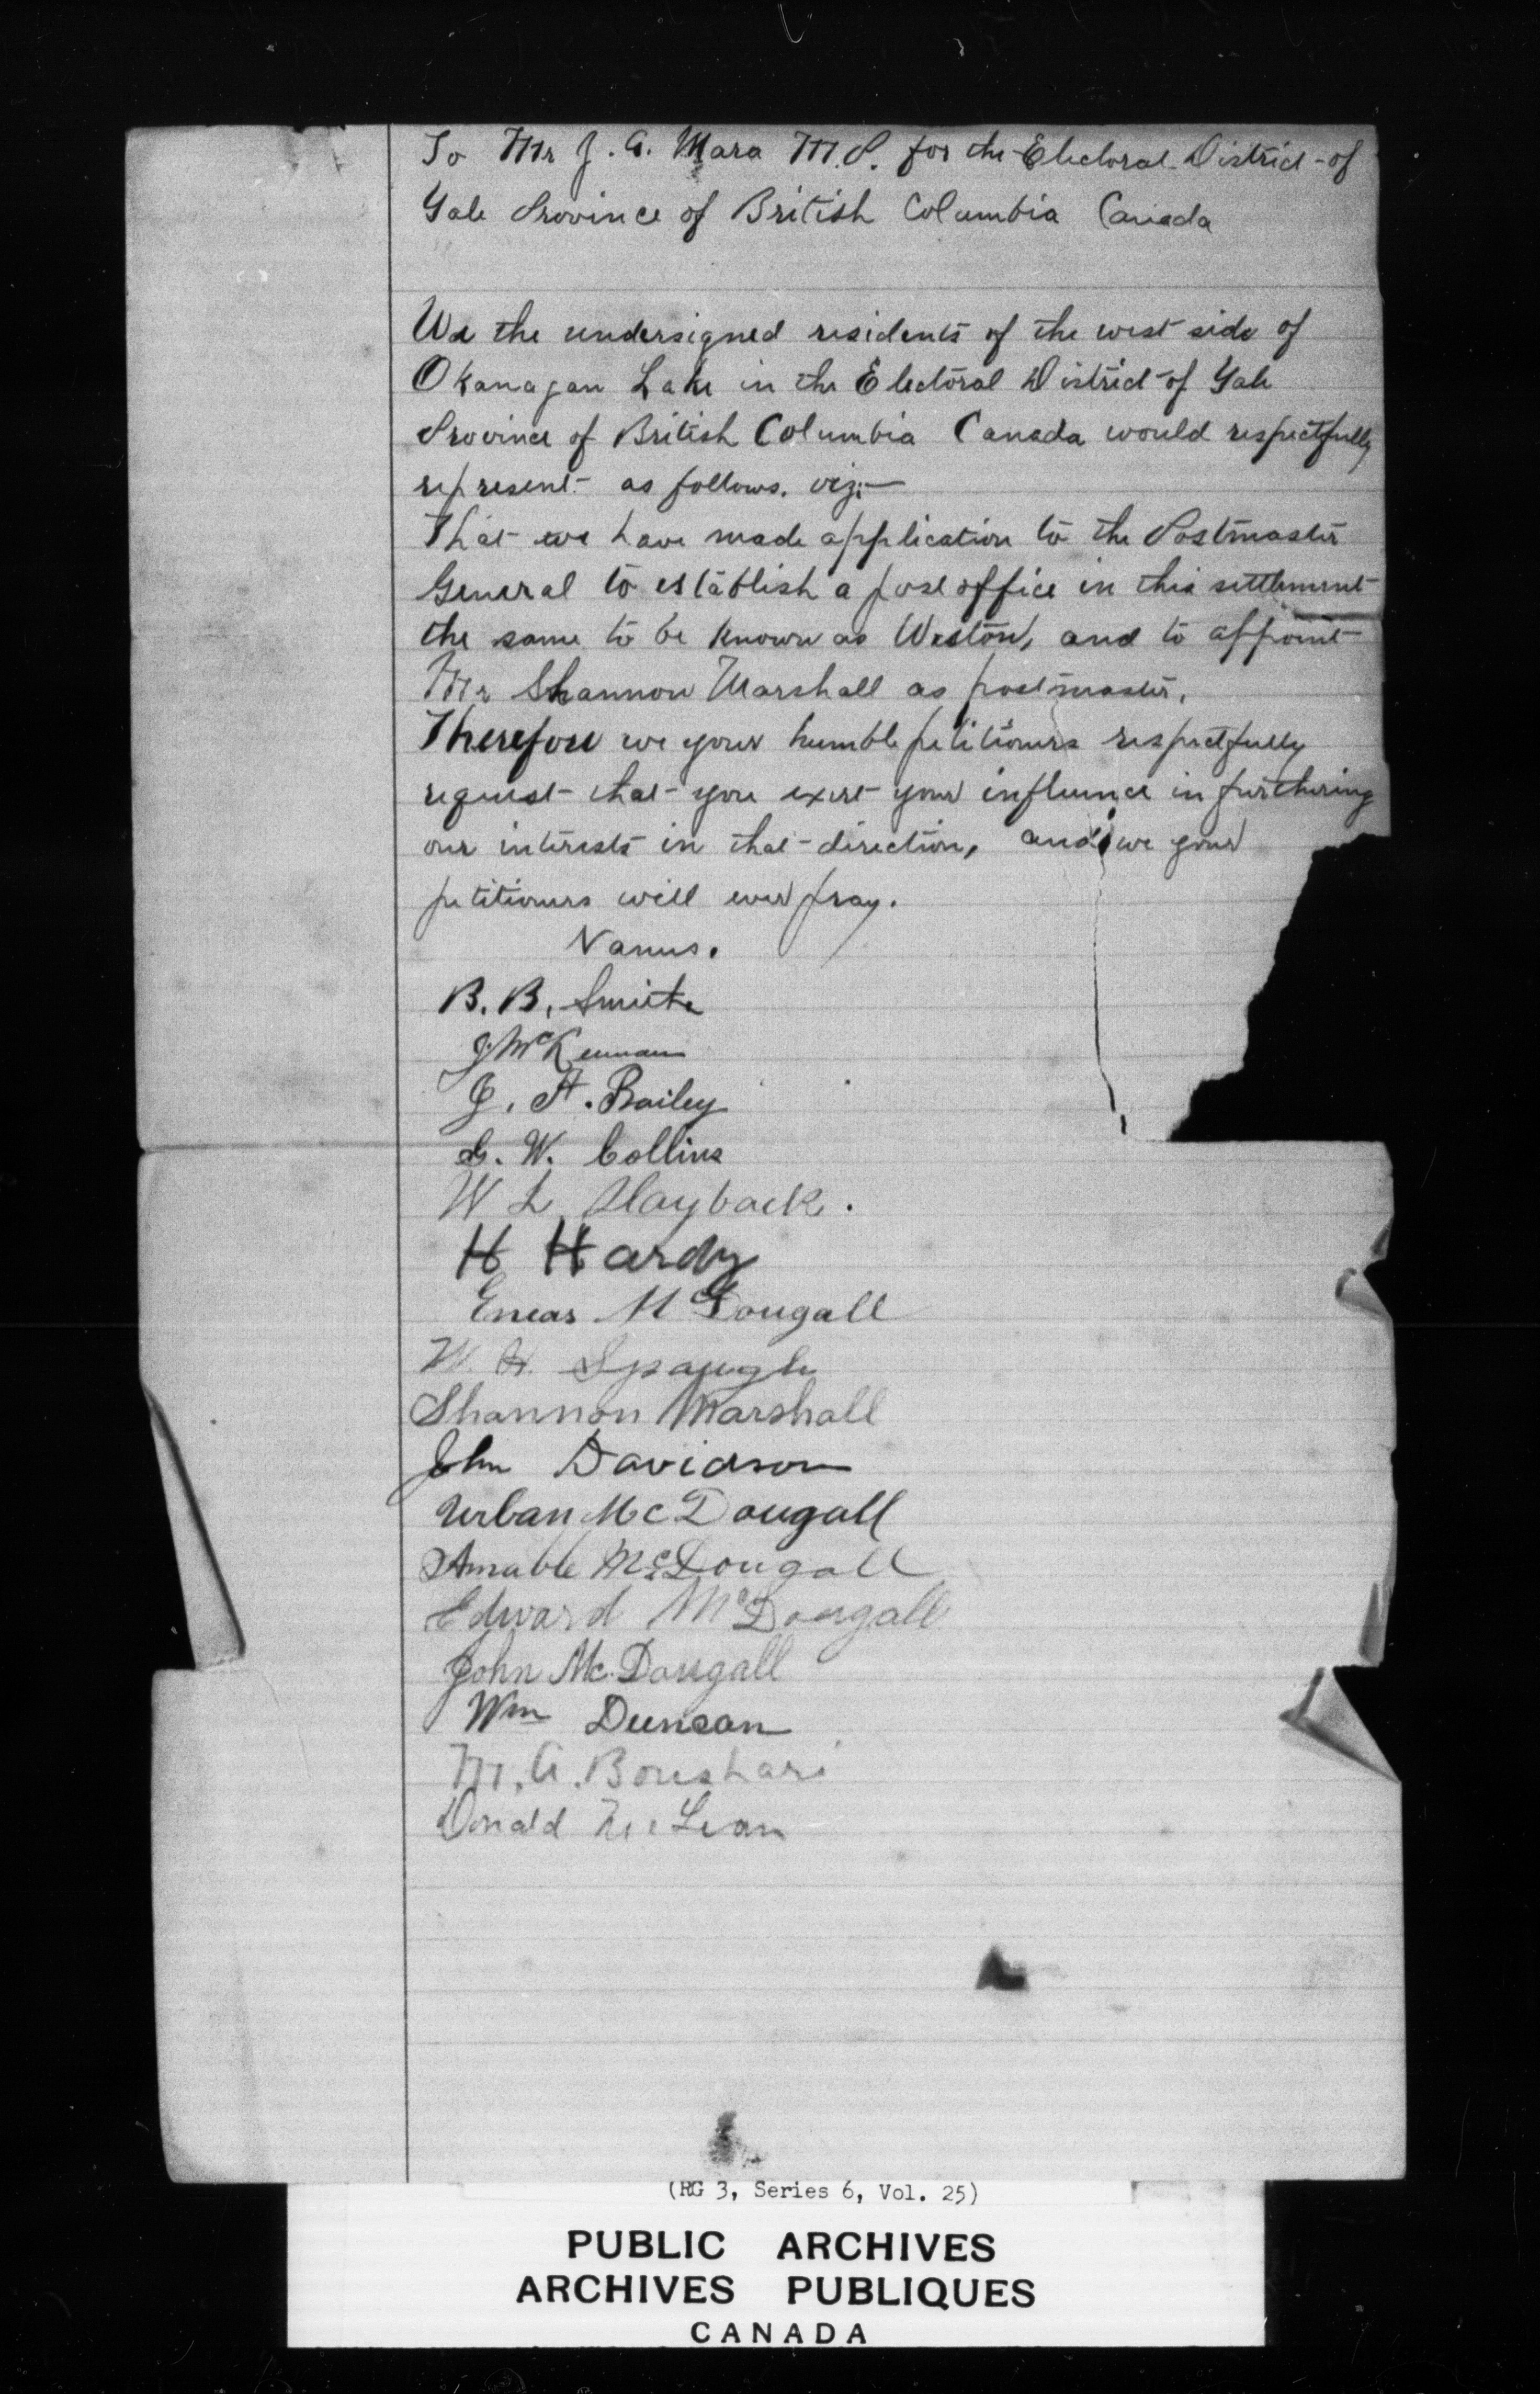 To Mr J. A. Mara M.P. for the Electoral District of
Yale Province of British Columbia Canada
We the undersigned residents of the west side of
Okanagan Lake in the Electoral District of Yale
Province of British Columbia Canada would respectfully
represent as follows. viz:—
That we have made application to the Postmaster
General to establish a post office in this settlement
the same to be known as Weston, and to appoint
Mr Shannon Marshall as postmaster.
Therefore we your humble petitioners respectfully
request that you exert your influence in furthering
our interests in that direction, and we your
petitioners will ever pray.
Names.
B. B. Smith
J. McKennan
J. A. Bailey
G. W. Collins
W L Slayback.
H Hardy
Eneas McDougall
W. H. Spaugh
Shannon Marshall
John Davidson
Urban McDougall
Amable McDougall
Edward McDougall
John Mc.Dougall
Wm Duncan
M. A. Boushari
Donald McLean
(RG 3, Series 6, Vol. 25)
PUBLIC ARCHIVES
ARCHIVES PUBLIQUES
CANADA